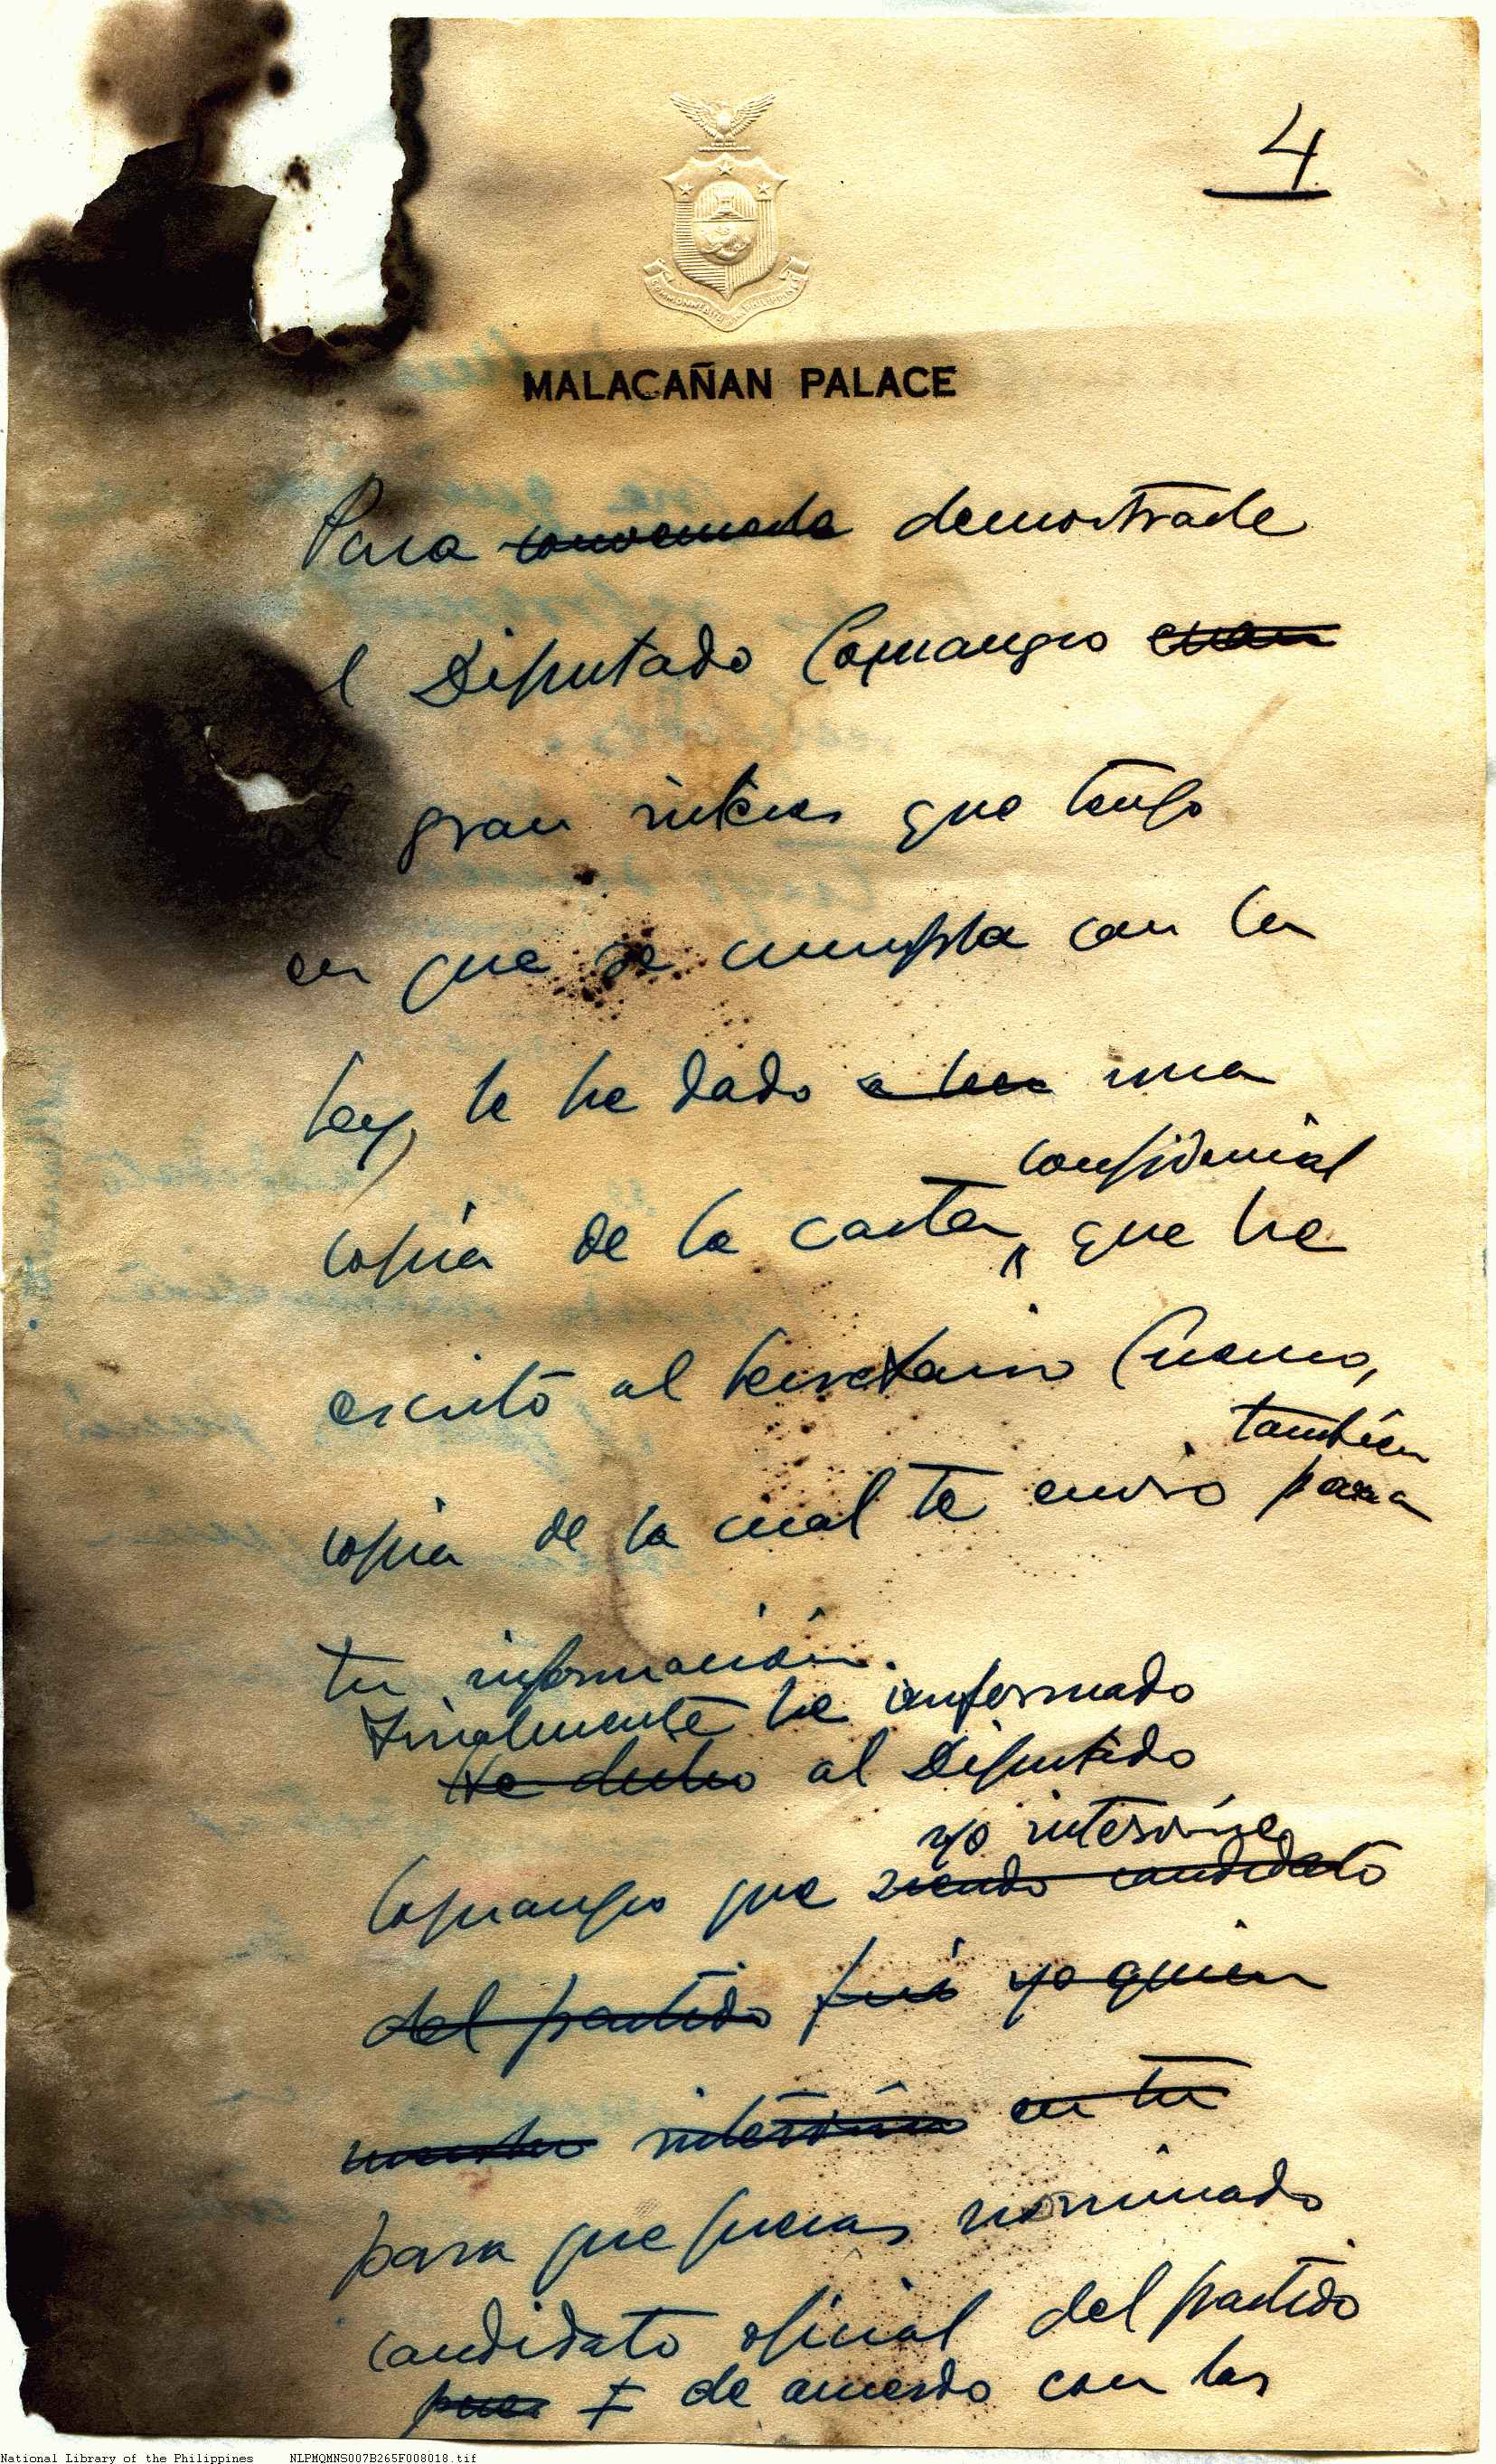 4
MALACAÑAN PALACE
Para demostrarle
l Diputado Comangio
el gran interes que tengo
en que se cumpla con la
ley, le he dado a leer una
confidencial
copia de la carta que he
escrito al Secretario Cuenco,
también
copia de la cual te envio para
tu información.
Finalmente he informado
He dicho al Diputado
yo intervine
que siendo candidato
del partido fui yo quien
intervino en tu
para que fueras nominado
candidato oficial del partido
pues de acuerdo con las
National Library of the Philippines NLPMQMNS007B265F008018.tif